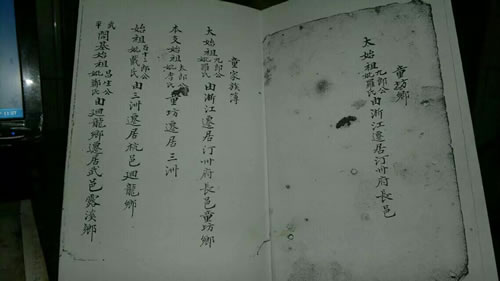 童坊鄉
太始祖九郎公妣羅氏由浙江遷居汀州府長邑
童家簿
太始祖九郎公妣羅氏由浙江遷居汀州府長邑童坊鄉
本支始祖妣李氏童坊遷居三洲
始祖郎公妣戴氏由三洲遷居杭邑迴龍鄉
武平開基始祖公妣鄭氏由迴龍鄉遷居武邑露溪鄉